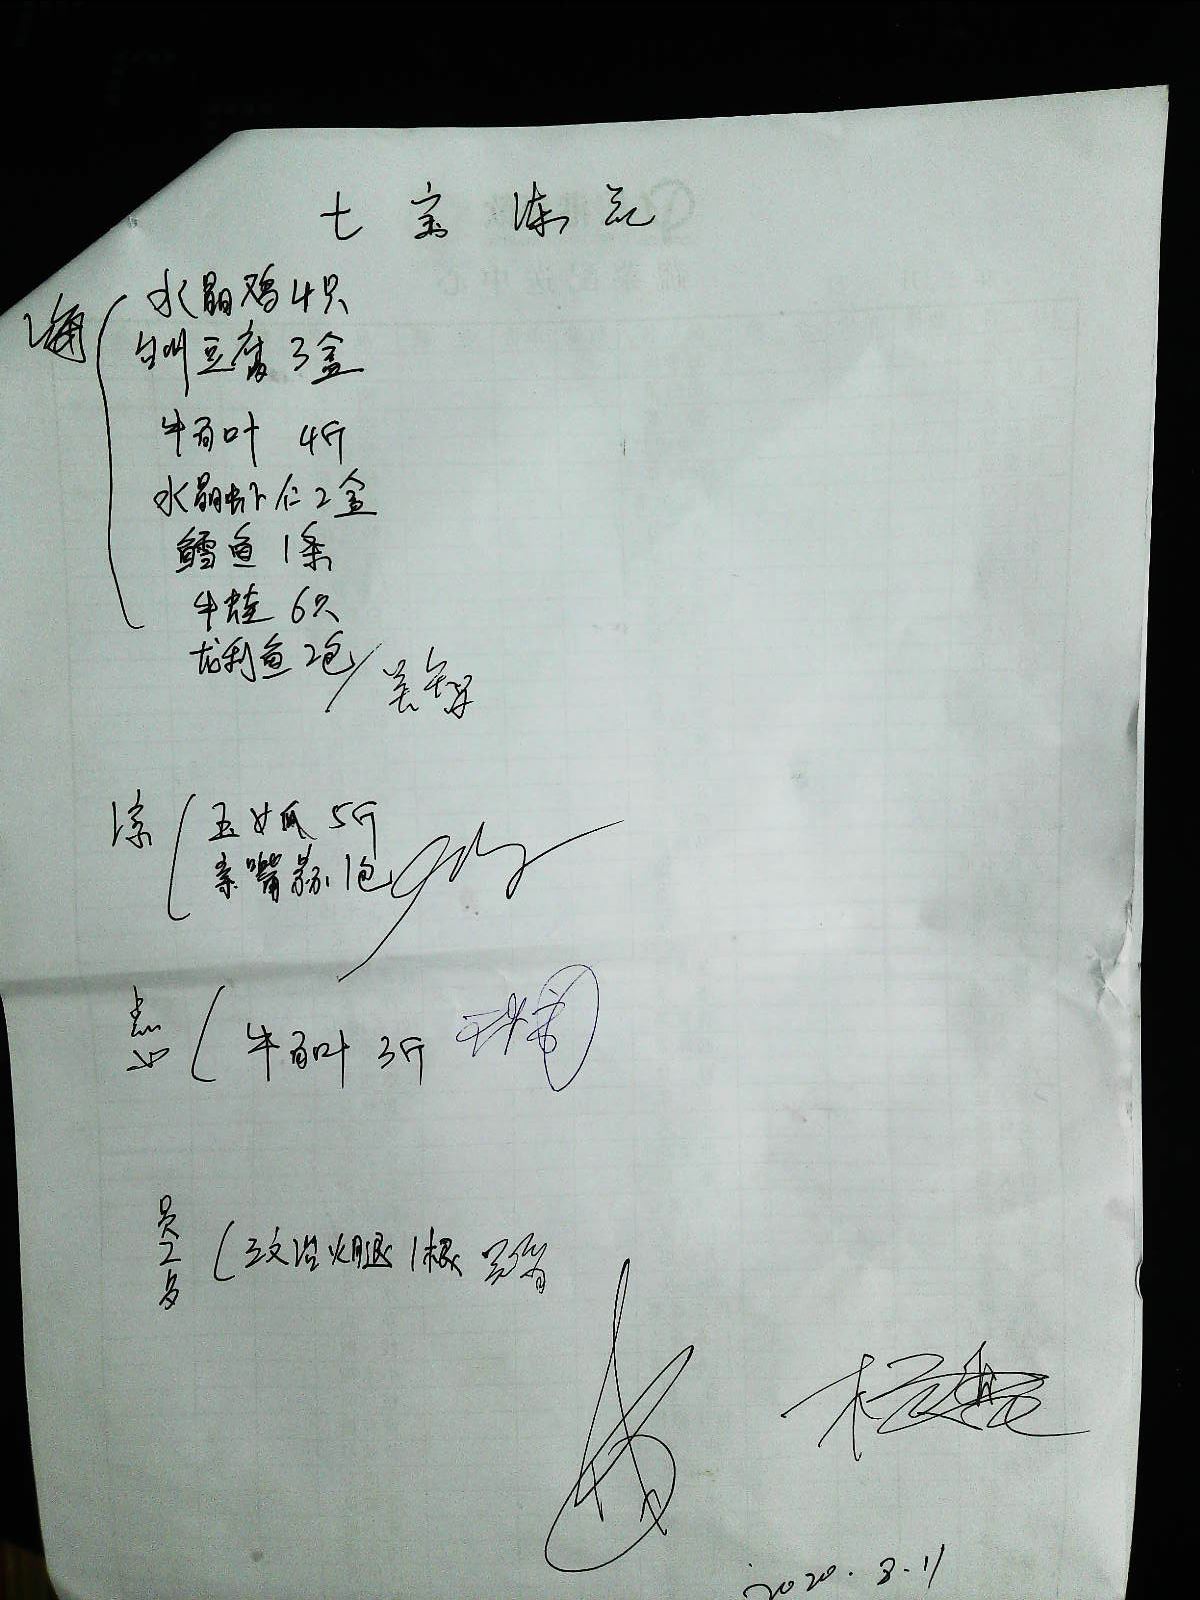 七宝 冻品
海
水晶鸡4只
白叫豆腐 3盒
牛百叶 4斤
水晶虾仁2盒
鳕鱼 1条
牛蛙 6只
龙利鱼2包
凉
玉女瓜 5斤
亲嘴蒜1包
点心
牛百叶 3斤
员工
三文治火腿 1根
2020.8.11